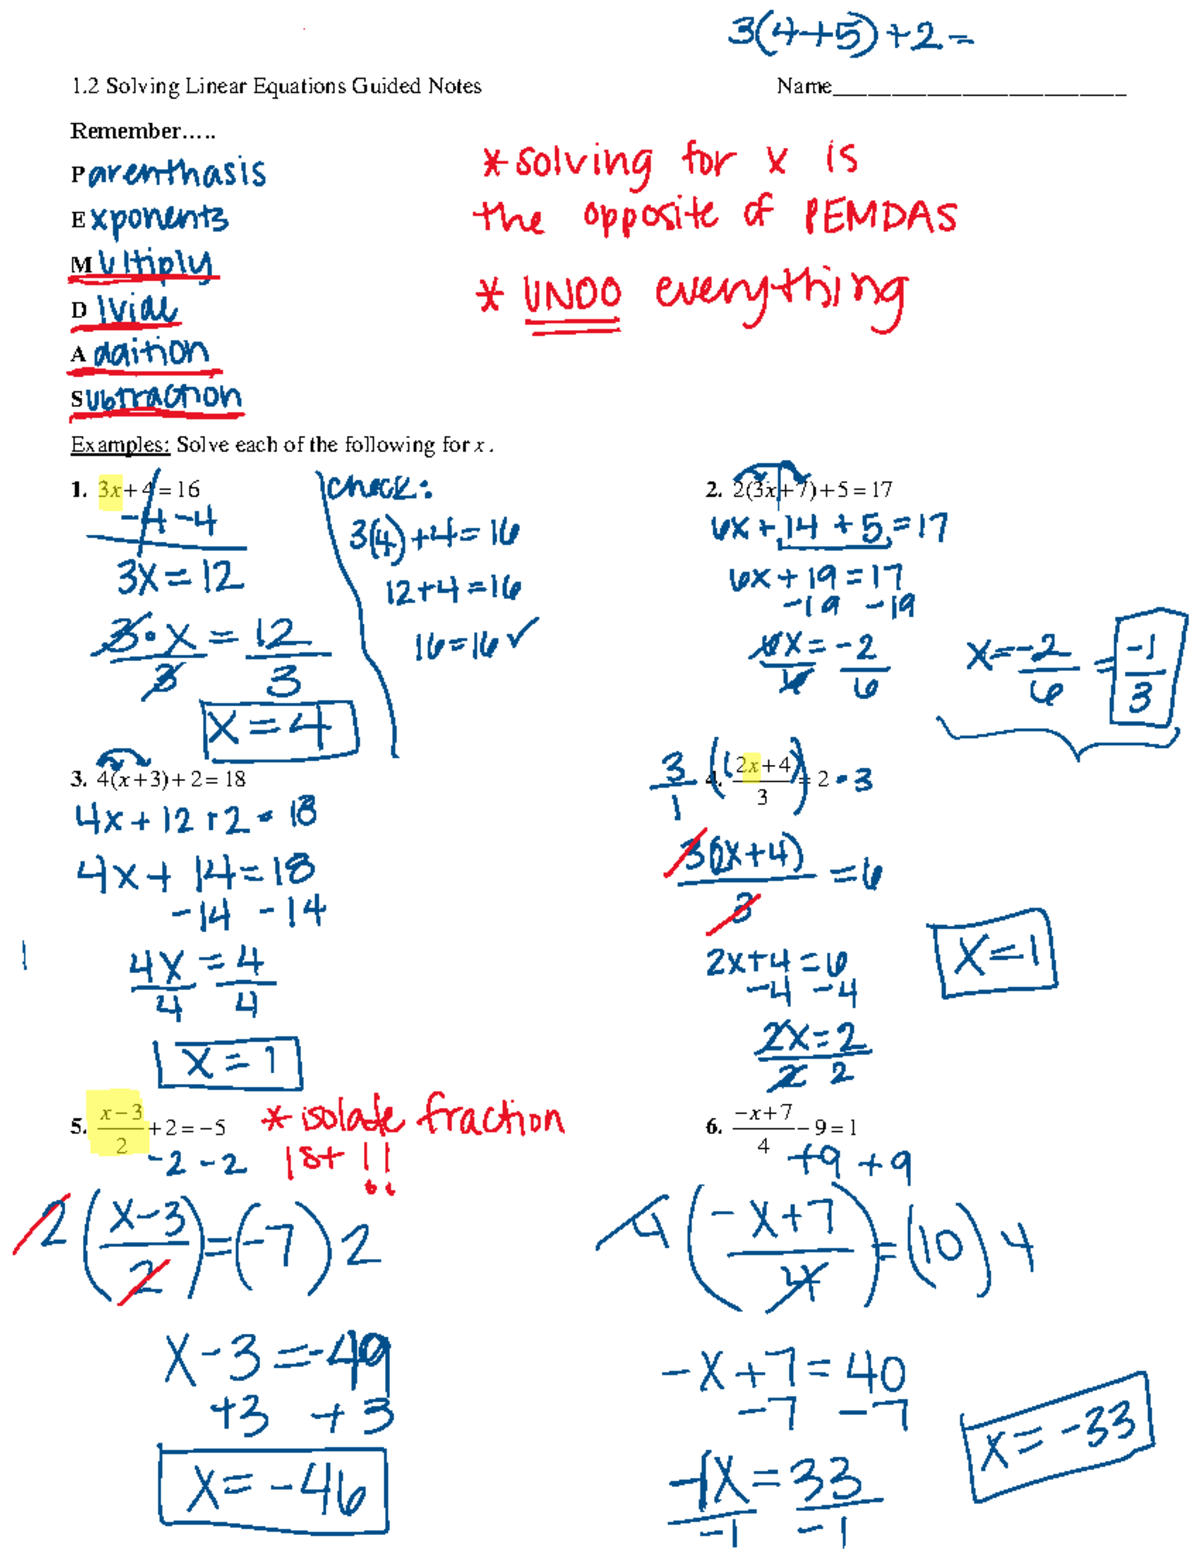 3(4+5)+2=
1.2 Solving Linear Equations Guided Notes Name___________________________
Remember…..
Parenthasis
Exponents
Multiply
Divide
Addition
Subtraction
* solving for x is
the opposite of PEMDAS
* UNDO everything
Examples: Solve each of the following for x.
1. 3x + 4 = 16
-4 -4
3x = 12
3·x = 12
3 3
x = 4
check:
3(4)+4=16
12+4=16
16=16 ✓
2. 2(3x+7)+5=17
6x+14+5=17
6x+19=17
-19 -19
6x = -2
6 6
x = -2/6 = -1/3
3. 4(x+3)+2=18
4x+12+2=18
4x+14=18
-14 -14
4x = 4
4 4
x = 1
4. 3/1 ((2x+4)/3) = 2·3
3(2x+4)/3 = 6
2x+4=6
-4 -4
2x=2
2 2
x=1
5. (x-3)/2 + 2 = -5
-2 -2
* isolate fraction
1st !!
2((x-3)/2)=(-7)2
x-3=-49
+3 +3
x=-46
6. (-x+7)/4 - 9 = 1
+9 +9
4((-x+7)/4)=(10)4
-x+7=40
-7 -7
-1x=33
-1 -1
x=-33